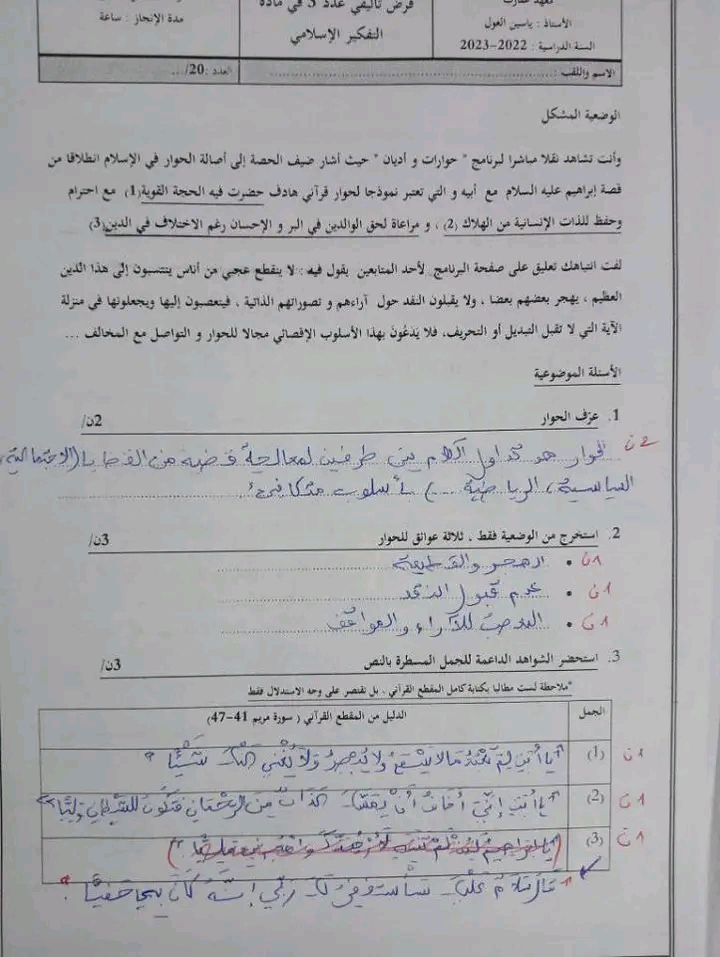 فرض تأليفي عدد 3 في مادة
التفكير الإسلامي
الأستاذ : ياسين الغول
السنة الدراسية : 2022-2023
مدة الإنجاز : ساعة
الاسم واللقب :
العدد :20/...
الوضعية المشكل
وأنت تشاهد نقلا مباشرا لبرنامج " حوارات و أديان " حيث أشار ضيف الحصة إلى أصالة الحوار في الإسلام انطلاقا من
قصة إبراهيم عليه السلام مع أبيه و التي تعتبر نموذجا لحوار قرآني هادف حضرت فيه الحجة القوية(1) مع احترام
وحفظ للذات الإنسانية من الهلاك (2) ، و مراعاة لحق الوالدين في البر و الإحسان رغم الاختلاف في الدين(3)
لفت انتباهك تعليق على صفحة البرنامج لأحد المتابعين يقول فيه : لا ينقطع عجبي من أناس ينتسبون إلى هذا الدين
العظيم ، يهجر بعضهم بعضا ، ولا يقبلون النقد حول آراءهم و تصوراتهم الذاتية ، فيتعصبون إليها ويجعلونها في منزلة
الآية التي لا تقبل التبديل أو التحريف، فلا يَدَعُونَ بهذا الأسلوب الإقصائي مجالا للحوار و التواصل مع المخالف ...
الأسئلة الموضوعية
1. عرّف الحوار 2ن/
الحوار هو تداول الكلام بين طرفين لمعالجة قضية من القضايا (الاجتماعية، 2ن
السياسية، الرياضية ...) بأسلوب متكافئ.
2. استخرج من الوضعية فقط ، ثلاثة عوائق للحوار 3ن/
• الهجر والقطيعة 1ن
• عدم قبول النقد 1ن
• التعصب للآراء والمواقف 1ن
3. استحضر الشواهد الداعمة للجمل المسطرة بالنص 3ن/
*ملاحظة لست مطالبا بكتابة كامل المقطع القرآني ، بل تقتصر على وجه الاستدلال فقط
الجمل الدليل من المقطع القرآني ( سورة مريم 41-47)
(1) "يا أبت لم تعبد ما لا يسمع ولا يبصر ولا يغني عنك شيئا" 1ن
(2) "يا أبت إني أخاف أن يمسك عذاب من الرحمان فتكون للشيطان وليا" 1ن
(3) 1ن
"قال سلام عليك سأستغفر لك ربي إنه كان بي حفيا"